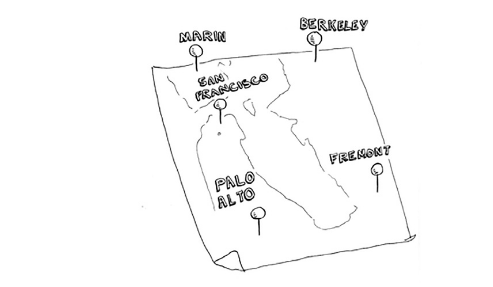 MARIN
BERKELEY
SAN
FRANCISCO
FREMONT
PALO
ALTO